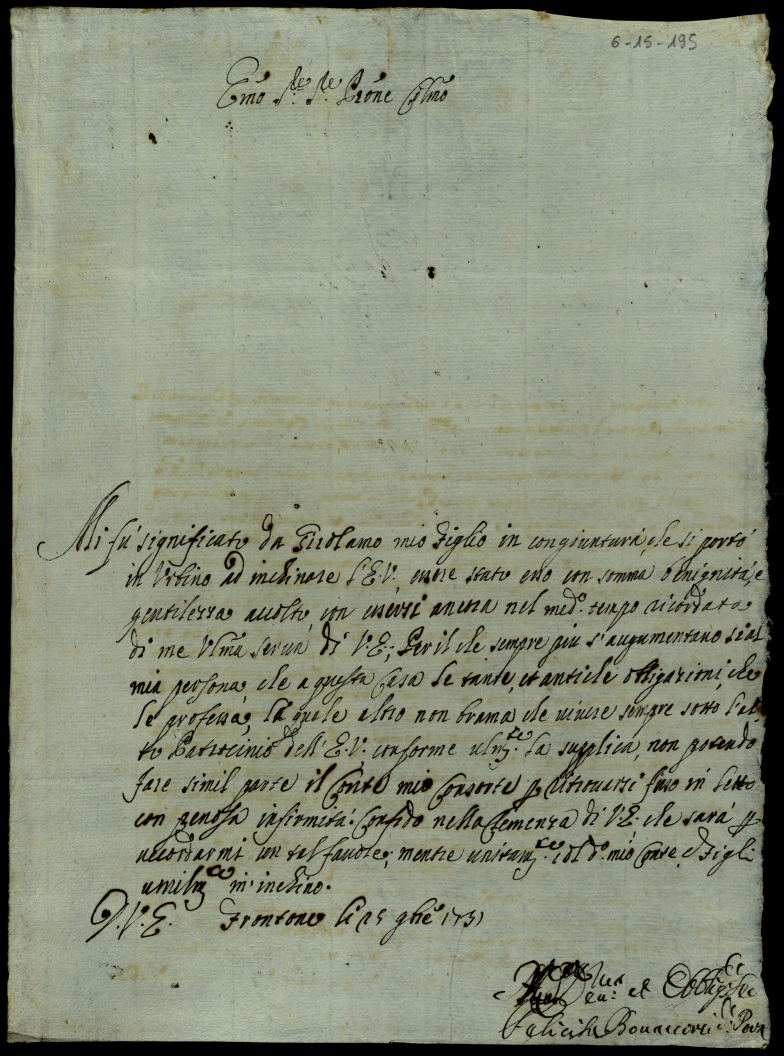 6-15-195
Emo Sre Sre Prone Colmo
Mi fu' significato da Girolamo mio Figlio in congiuntura, che si portò
in Urbino ad inchinare l'E.V., essere stato esso con somma benignità, e
gentilezza accolto, con essersi ancora nel med.o tempo ricordata
di me Ulma serva di V.E.; Per il che sempre più s'augumentano sì al
mia persona, che a questa Casa le tante, et antiche obligazioni, che
le professa, la quale altro non brama che vivere sempre sotto l'al
to Patrocinio dell'E.V. conforme ulmte la supplica, non potendo
fare simil parte il Conte mio Consorte p ritrovarsi fisso in letto
con penosa infirmità. Confido nella Clemenza di V.E. che sarà p
accordarmi un tal favore, mentre unitamte col do mio Conte, e Figli
umilmte m'inchino.
D.V.E. Frontone li 25 gbre 1731
et Obbligma
Felicita Bonaccorsi